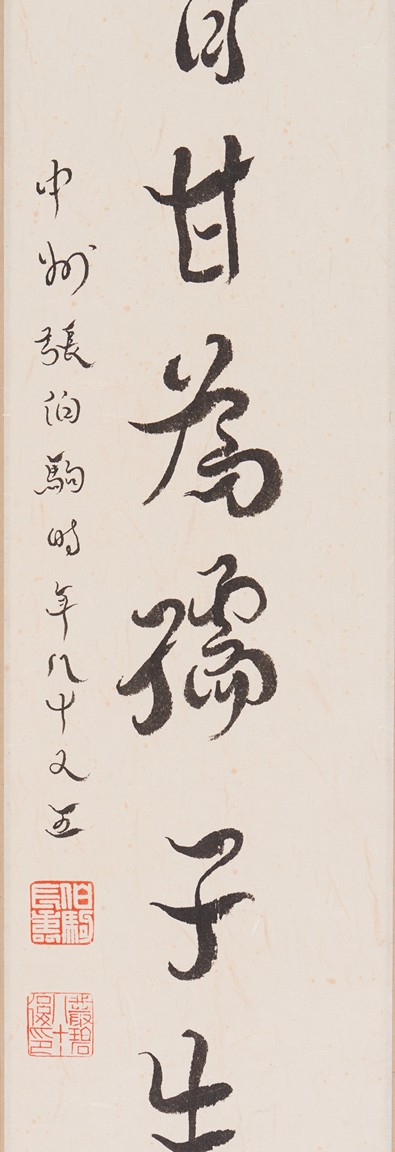 首甘為孺子牛
中州張伯駒時年八十又五
伯駒長壽
叢碧八十後印